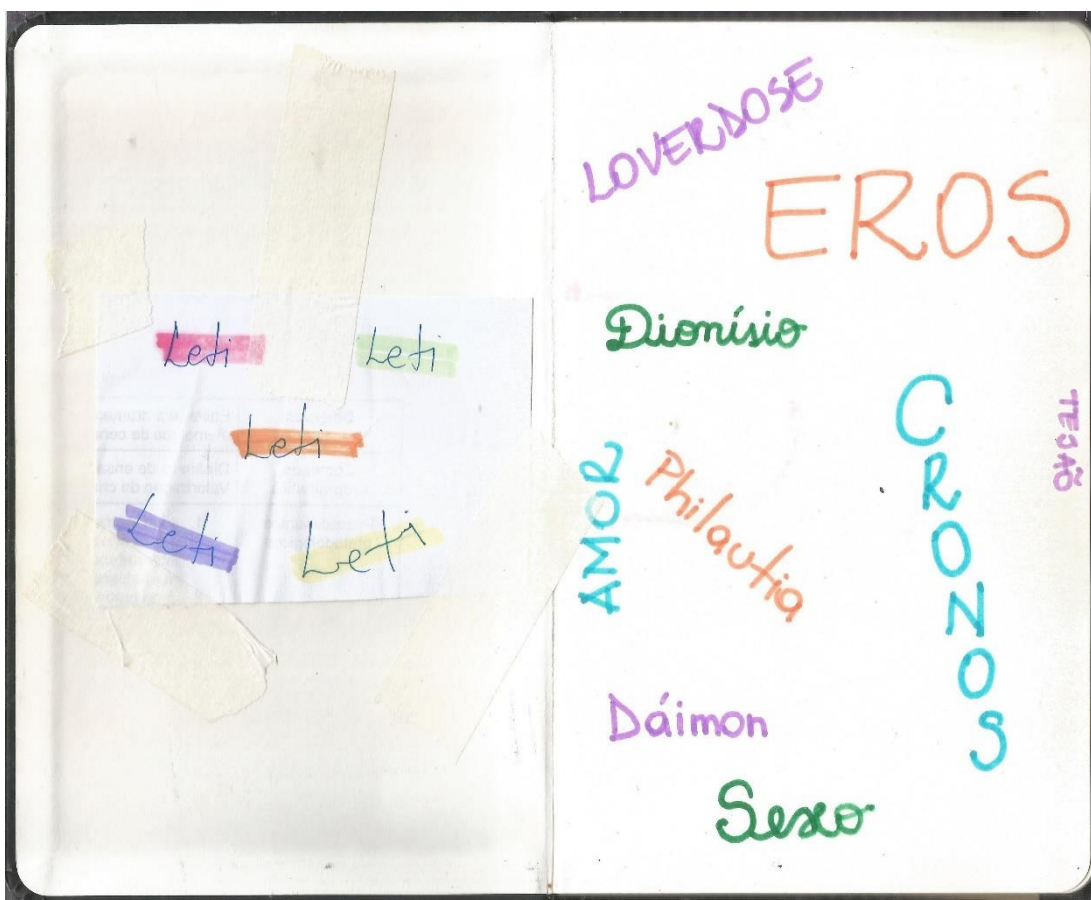 Leti
Leti
Leti
Leti
Leti
LOVERDOSE
EROS
Dionísio
CRONOS
TESÃO
AMOR
Philautia
Dáimon
Sexo